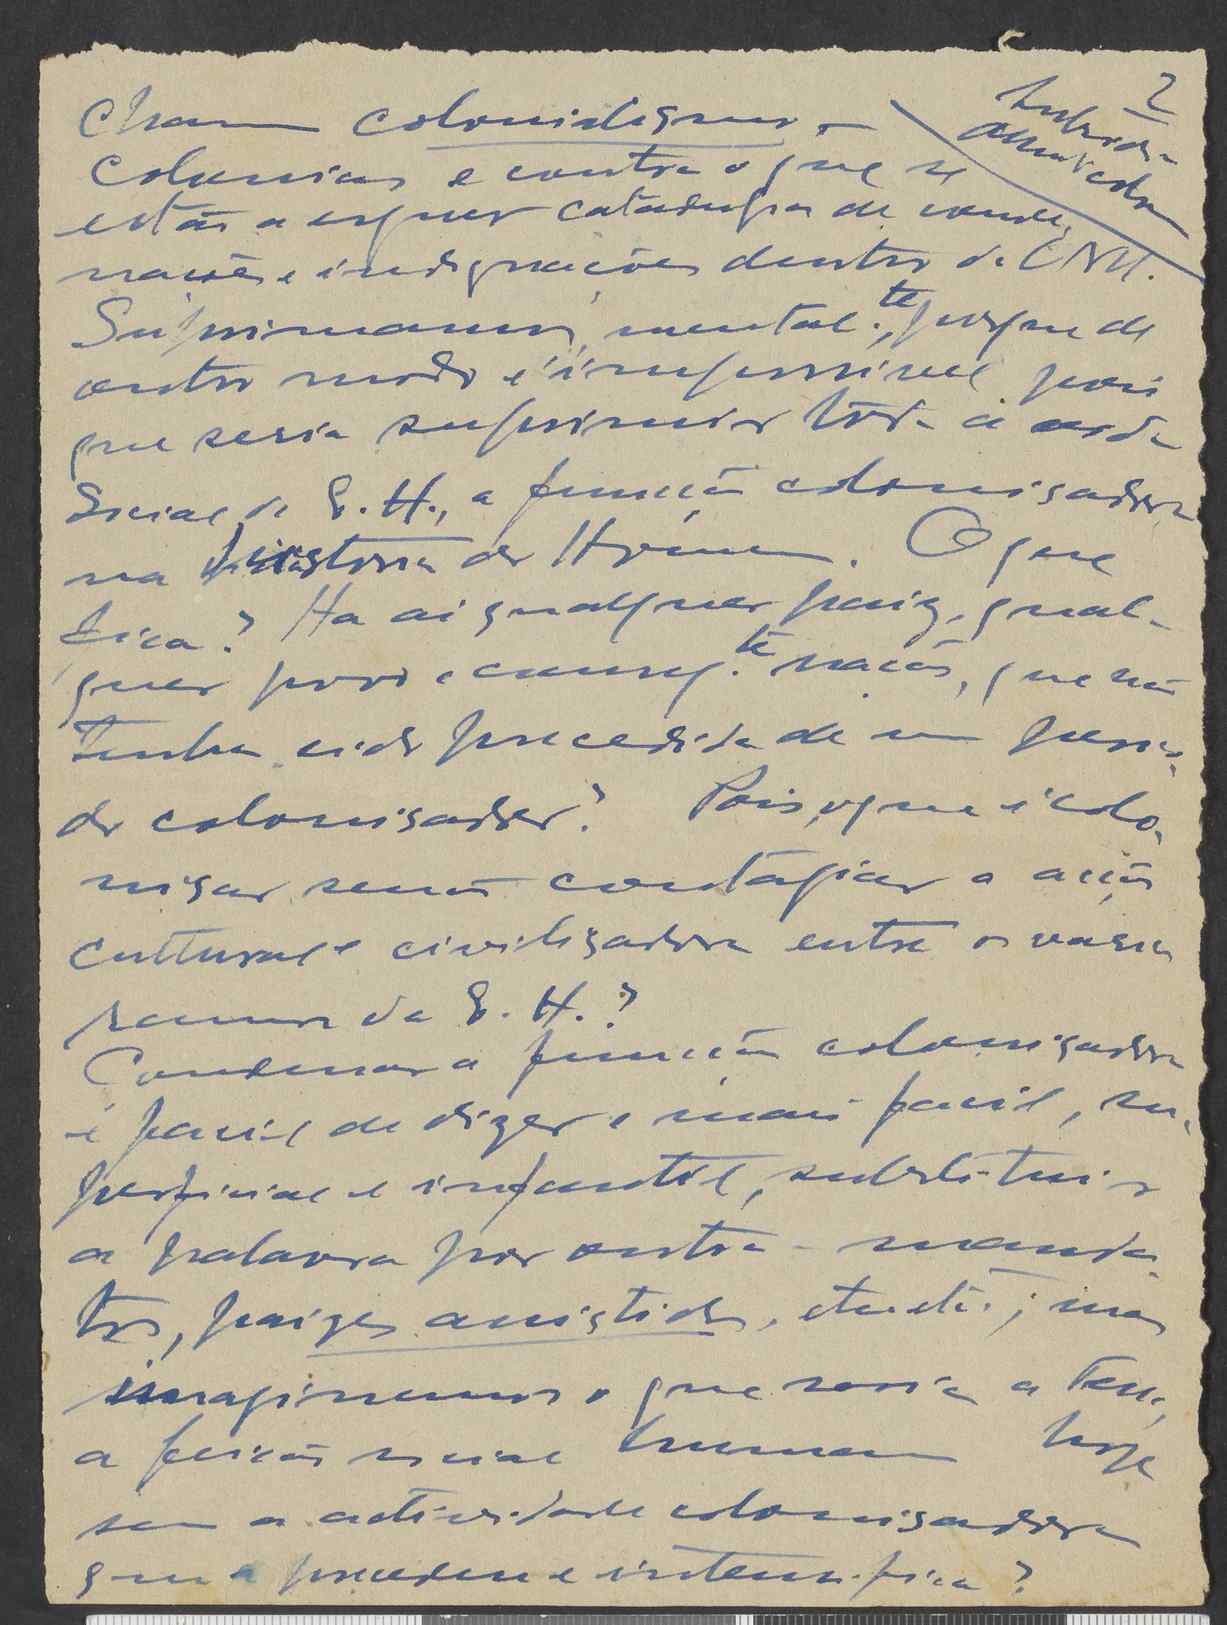 2
chamam colonialismo,
colonias e contra o que se
estão a erguer catadupas de conde
nações e indignações dentro da ONU.
Suprimamos, mental.te, porque de
outro modo é impossivel pois
que seria suprimir toda a vida
Social da E. H., a função colonisadora
na historia do Homem. O que
fica? Ha ai qualquer paiz, qual-
quer povo e conseq.te nação, que não
tenha sido precedida de um perio-
do colonisador? Pois, o que é colo-
nisar, senão contagiar a acção
cultural e civilisadora entre os varios
ramos da E. H.?
Condenar a função colonisadora
é facil de dizer e mais facil, su-
perficial e infantil, substituir
a palavra por outra - manda-
tos, paizes assistidos, etc. etc.; mas
imaginemos o que seria a Terra,
a feição social humana hoje
sem a actividade colonisadora
que a precedeu e intensifica?